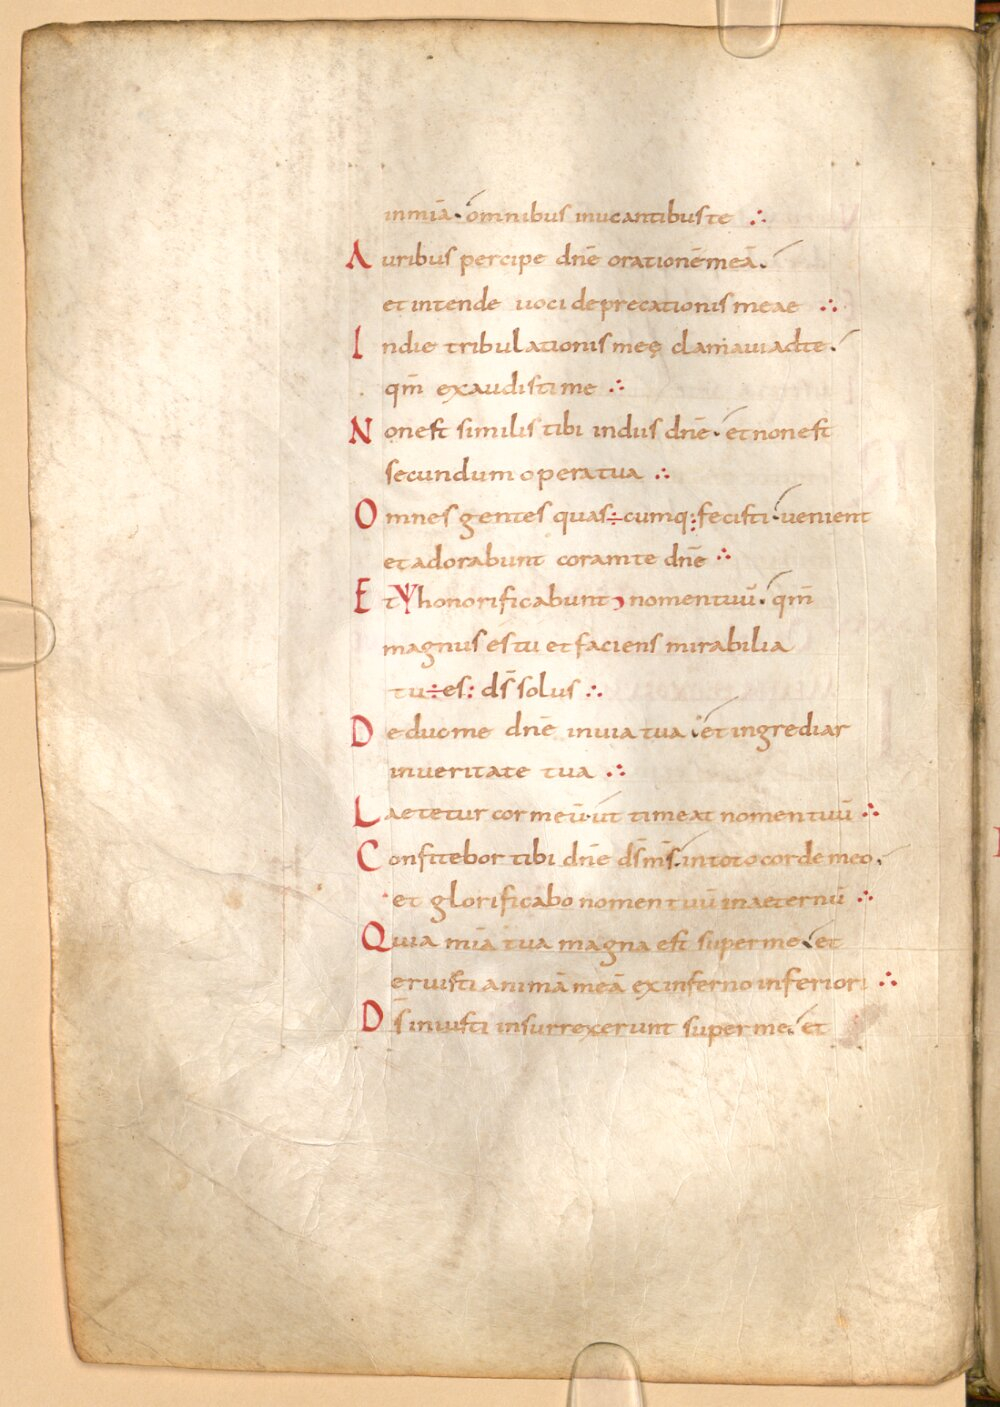 inmiā· omnibus inuocantibus te ∴
Auribus percipe dnē orationē meā.
et intende uoci deprecationis meae ∴
In die tribulationis meę clamaui ad te.
qm̄ exaudisti me ∴
Non est similis tibi in diis dnē· et non est
secundum opera tua ∴
Omnes gentes quas÷cumq:fecisti· uenient
et adorabunt coram te dnē ∴
Et honorificabunt nomen tuū· qm̄
magnus es tu et faciens mirabilia
tu÷es: ds̄ solus ∴
Deduc me dnē in uia tua· et ingrediar
in ueritate tua ∴
Laetetur cor meū· ut timeat nomen tuū ∴
Confitebor tibi dnē ds̄ ms̄· in toto corde meo.
et glorificabo nomen tuū in aeternū ∴
Quia miā tua magna est super me· et
eruisti animā meā ex inferno inferiori ∴
Ds̄ iniusti insurrexerunt super me· et